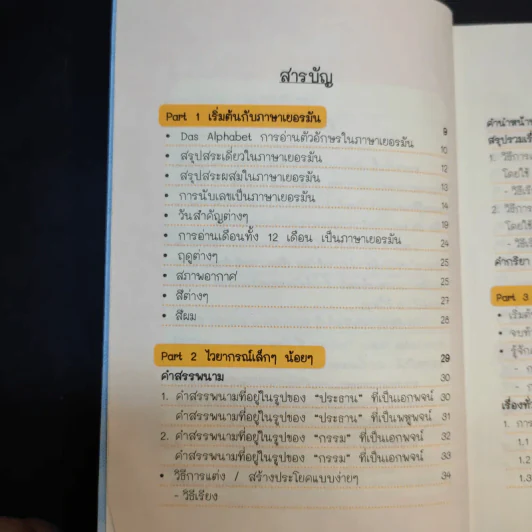 สารบัญ
Part 1 เริ่มต้นกับภาษาเยอรมัน
• Das Alphabet การอ่านตัวอักษรในภาษาเยอรมัน 9
• สรุปสระเดี่ยวในภาษาเยอรมัน 10
• สรุปสระผสมในภาษาเยอรมัน 12
• การนับเลขเป็นภาษาเยอรมัน 13
• วันสำคัญต่างๆ 14
• การอ่านเดือนทั้ง 12 เดือน เป็นภาษาเยอรมัน 19
• ฤดูต่างๆ 24
• สภาพอากาศ 25
• สีต่างๆ 25
• สีผม 27
28
Part 2 ไวยากรณ์เล็กๆ น้อยๆ 29
คำสรรพนาม 30
1. คำสรรพนามที่อยู่ในรูปของ "ประธาน" ที่เป็นเอกพจน์ 30
คำสรรพนามที่อยู่ในรูปของ "ประธาน" ที่เป็นพหูพจน์ 31
2. คำสรรพนามที่อยู่ในรูปของ "กรรม" ที่เป็นเอกพจน์ 32
คำสรรพนามที่อยู่ในรูปของ "กรรม" ที่เป็นเอกพจน์ 33
• วิธีการแต่ง / สร้างประโยคแบบง่ายๆ 34
- วิธีเรียง
สรุปรวมเรื่
1. วิธีการ
โดยใช้
- วิธีเรี
2. วิธีการ
โดยใช้
- วิธีเ
คำกริยา
Part 3
• เริ่มต้
• จบท้
• รู้จัก
เรื่องทั่
1. การ
1.1
1.2
1.3